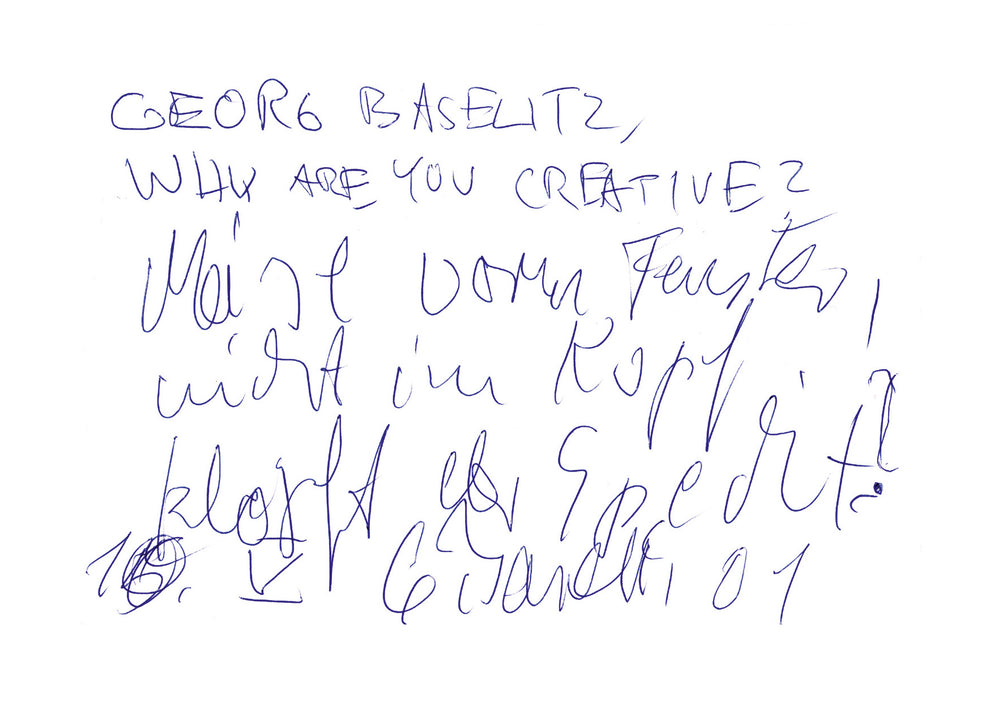 GEORG BASELITZ,
WHY ARE YOU CREATIVE?
Meise vorm Fenster,
nicht im Kopf
klopft
10. V 01